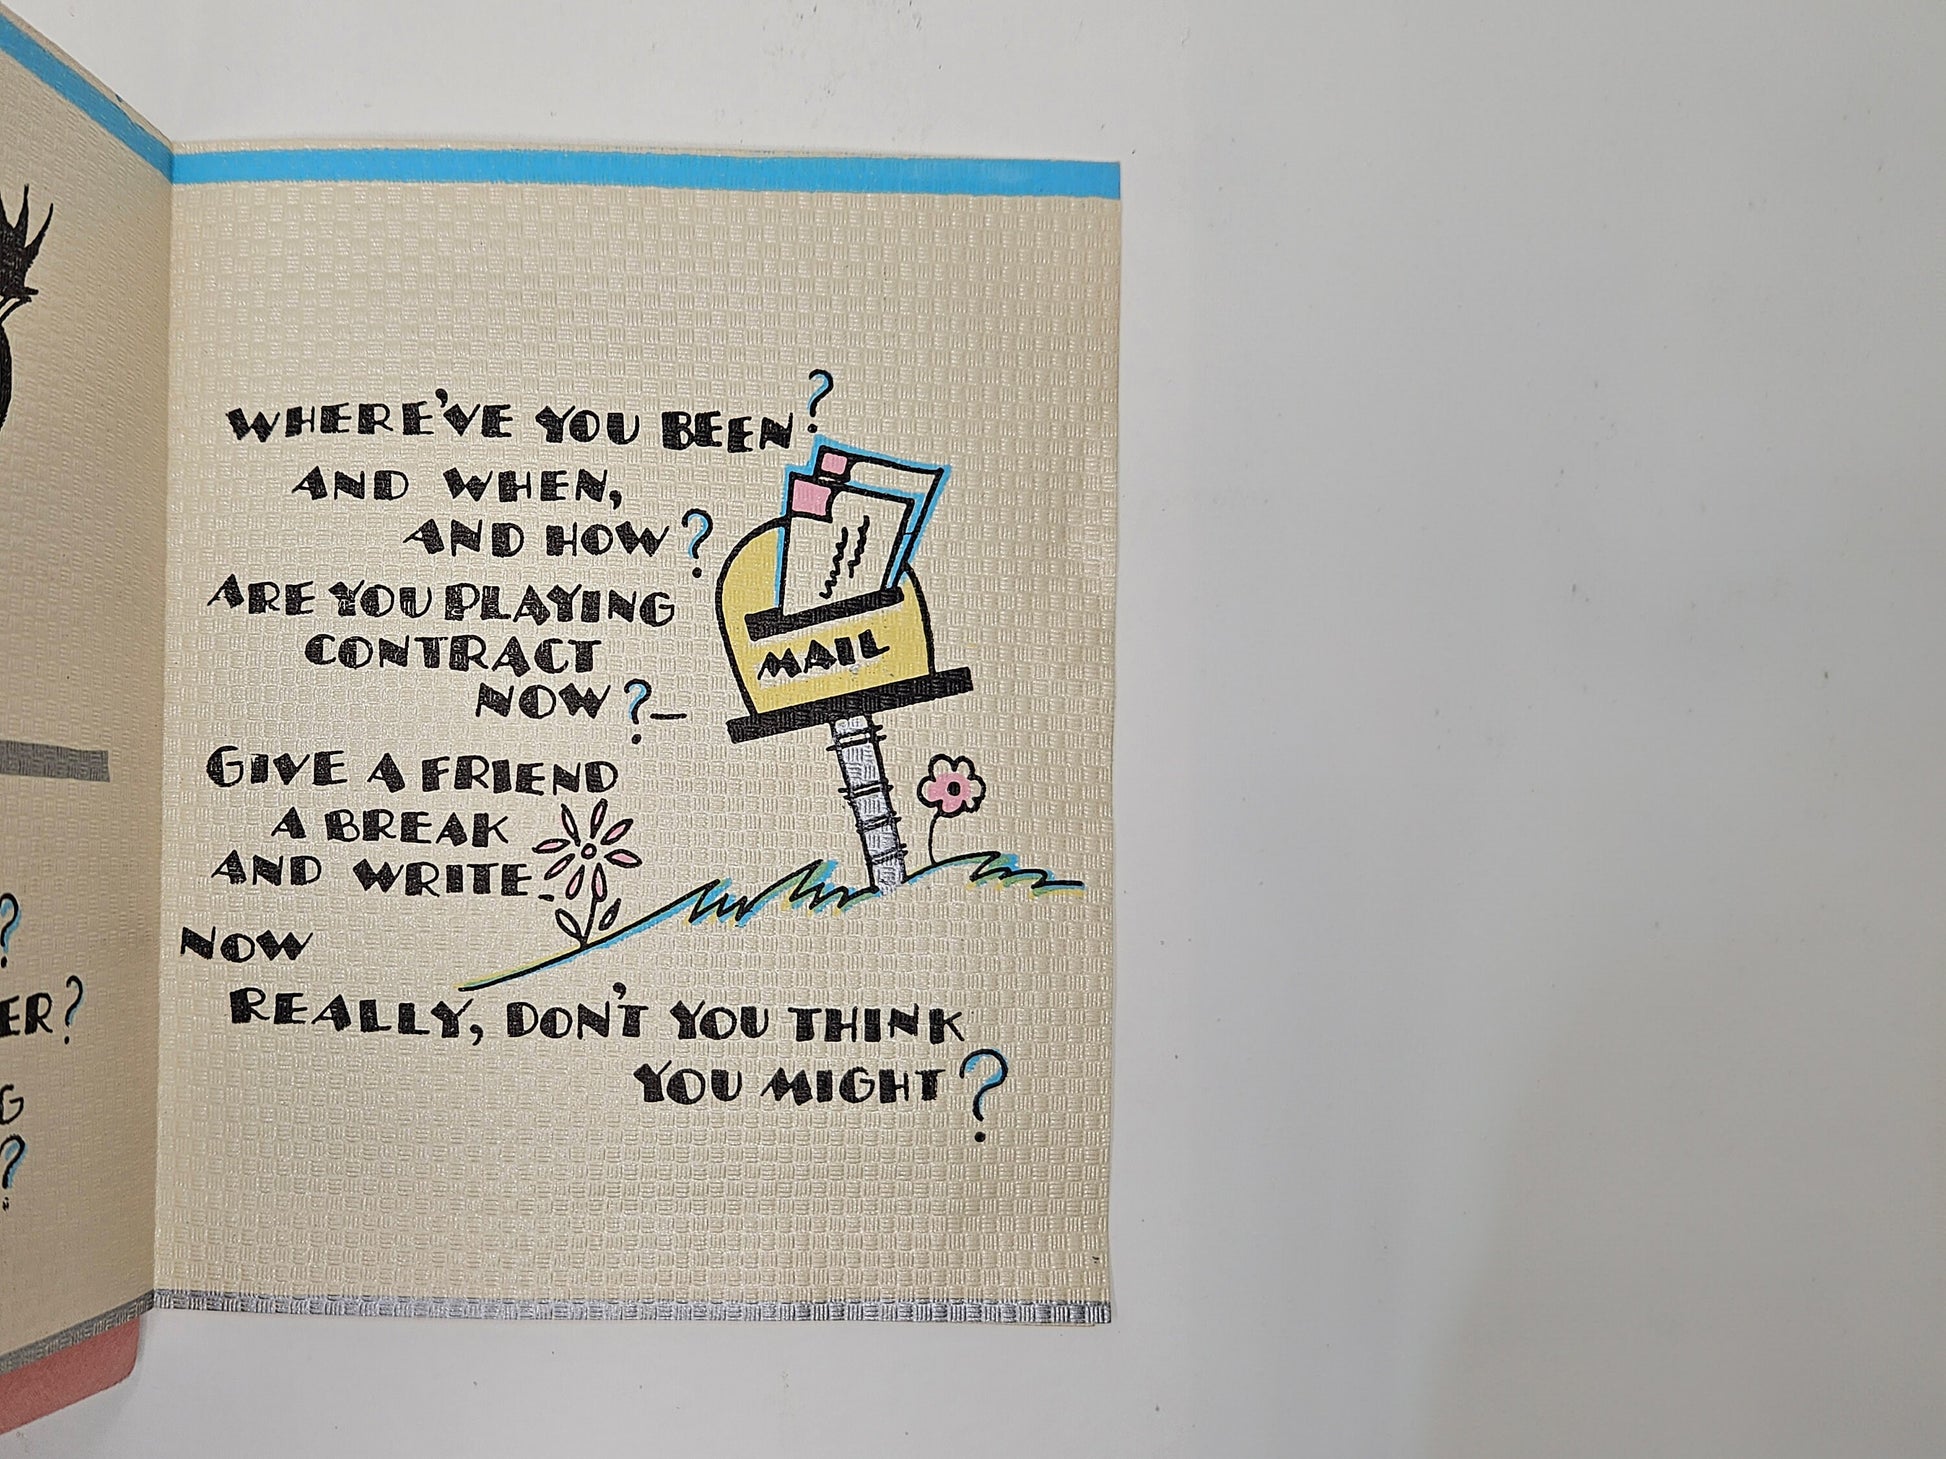 ?
ER?
G
?
WHERE'VE YOU BEEN?
AND WHEN,
AND HOW?
ARE YOU PLAYING
CONTRACT
NOW?—
GIVE A FRIEND
A BREAK
AND WRITE-
NOW
REALLY, DON'T YOU THINK
YOU MIGHT?
MAIL